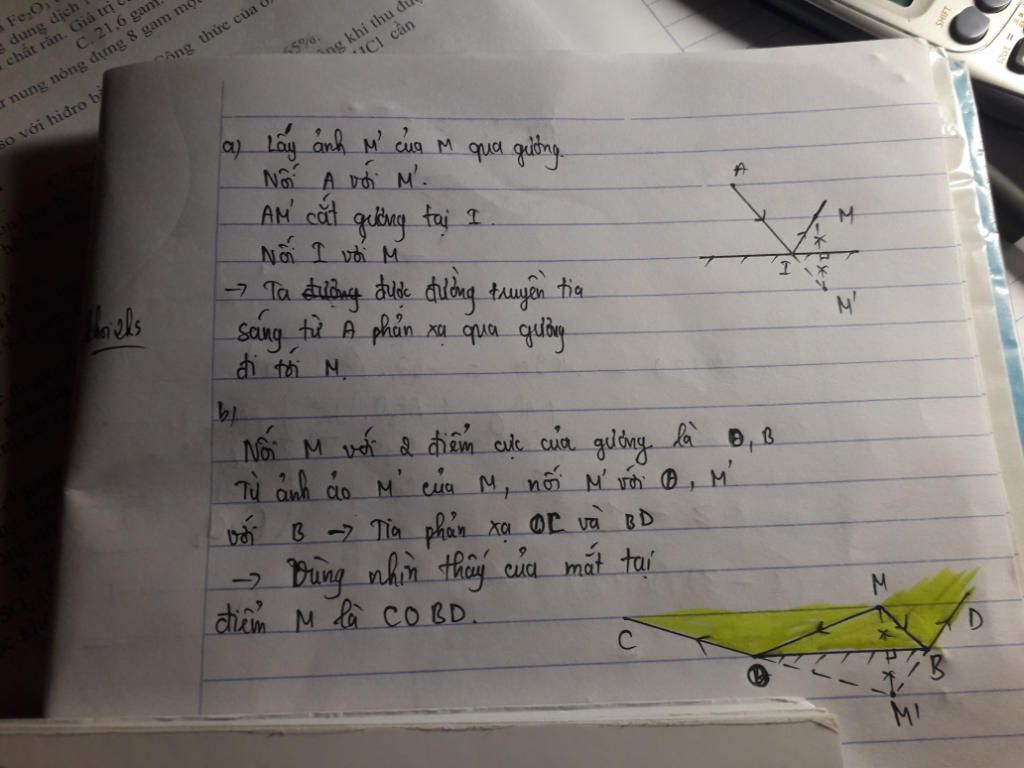 Fe₂O₃
dung dịch
chất rắn. Giá trị
C. 21,6 gam.
nung nóng đựng 8 gam một
so với hiđro
Công thức của
65%.
khí thu được
HCl cần
SHIFT
a) Lấy ảnh M' của M qua gương.
Nối A với M'.
AM' cắt gương tại I.
Nối I với M
→ Ta đường được đường truyền tia
sáng từ A phản xạ qua gương
đi tới M.
A
M
I
M'
b)
Nối M với 2 điểm cực của gương là O, B
Từ ảnh ảo M' của M, nối M' với O, M'
với B → Tia phản xạ OC và BD
→ Vùng nhìn thấy của mắt tại
điểm M là COBD.
M
C
D
O
B
M'